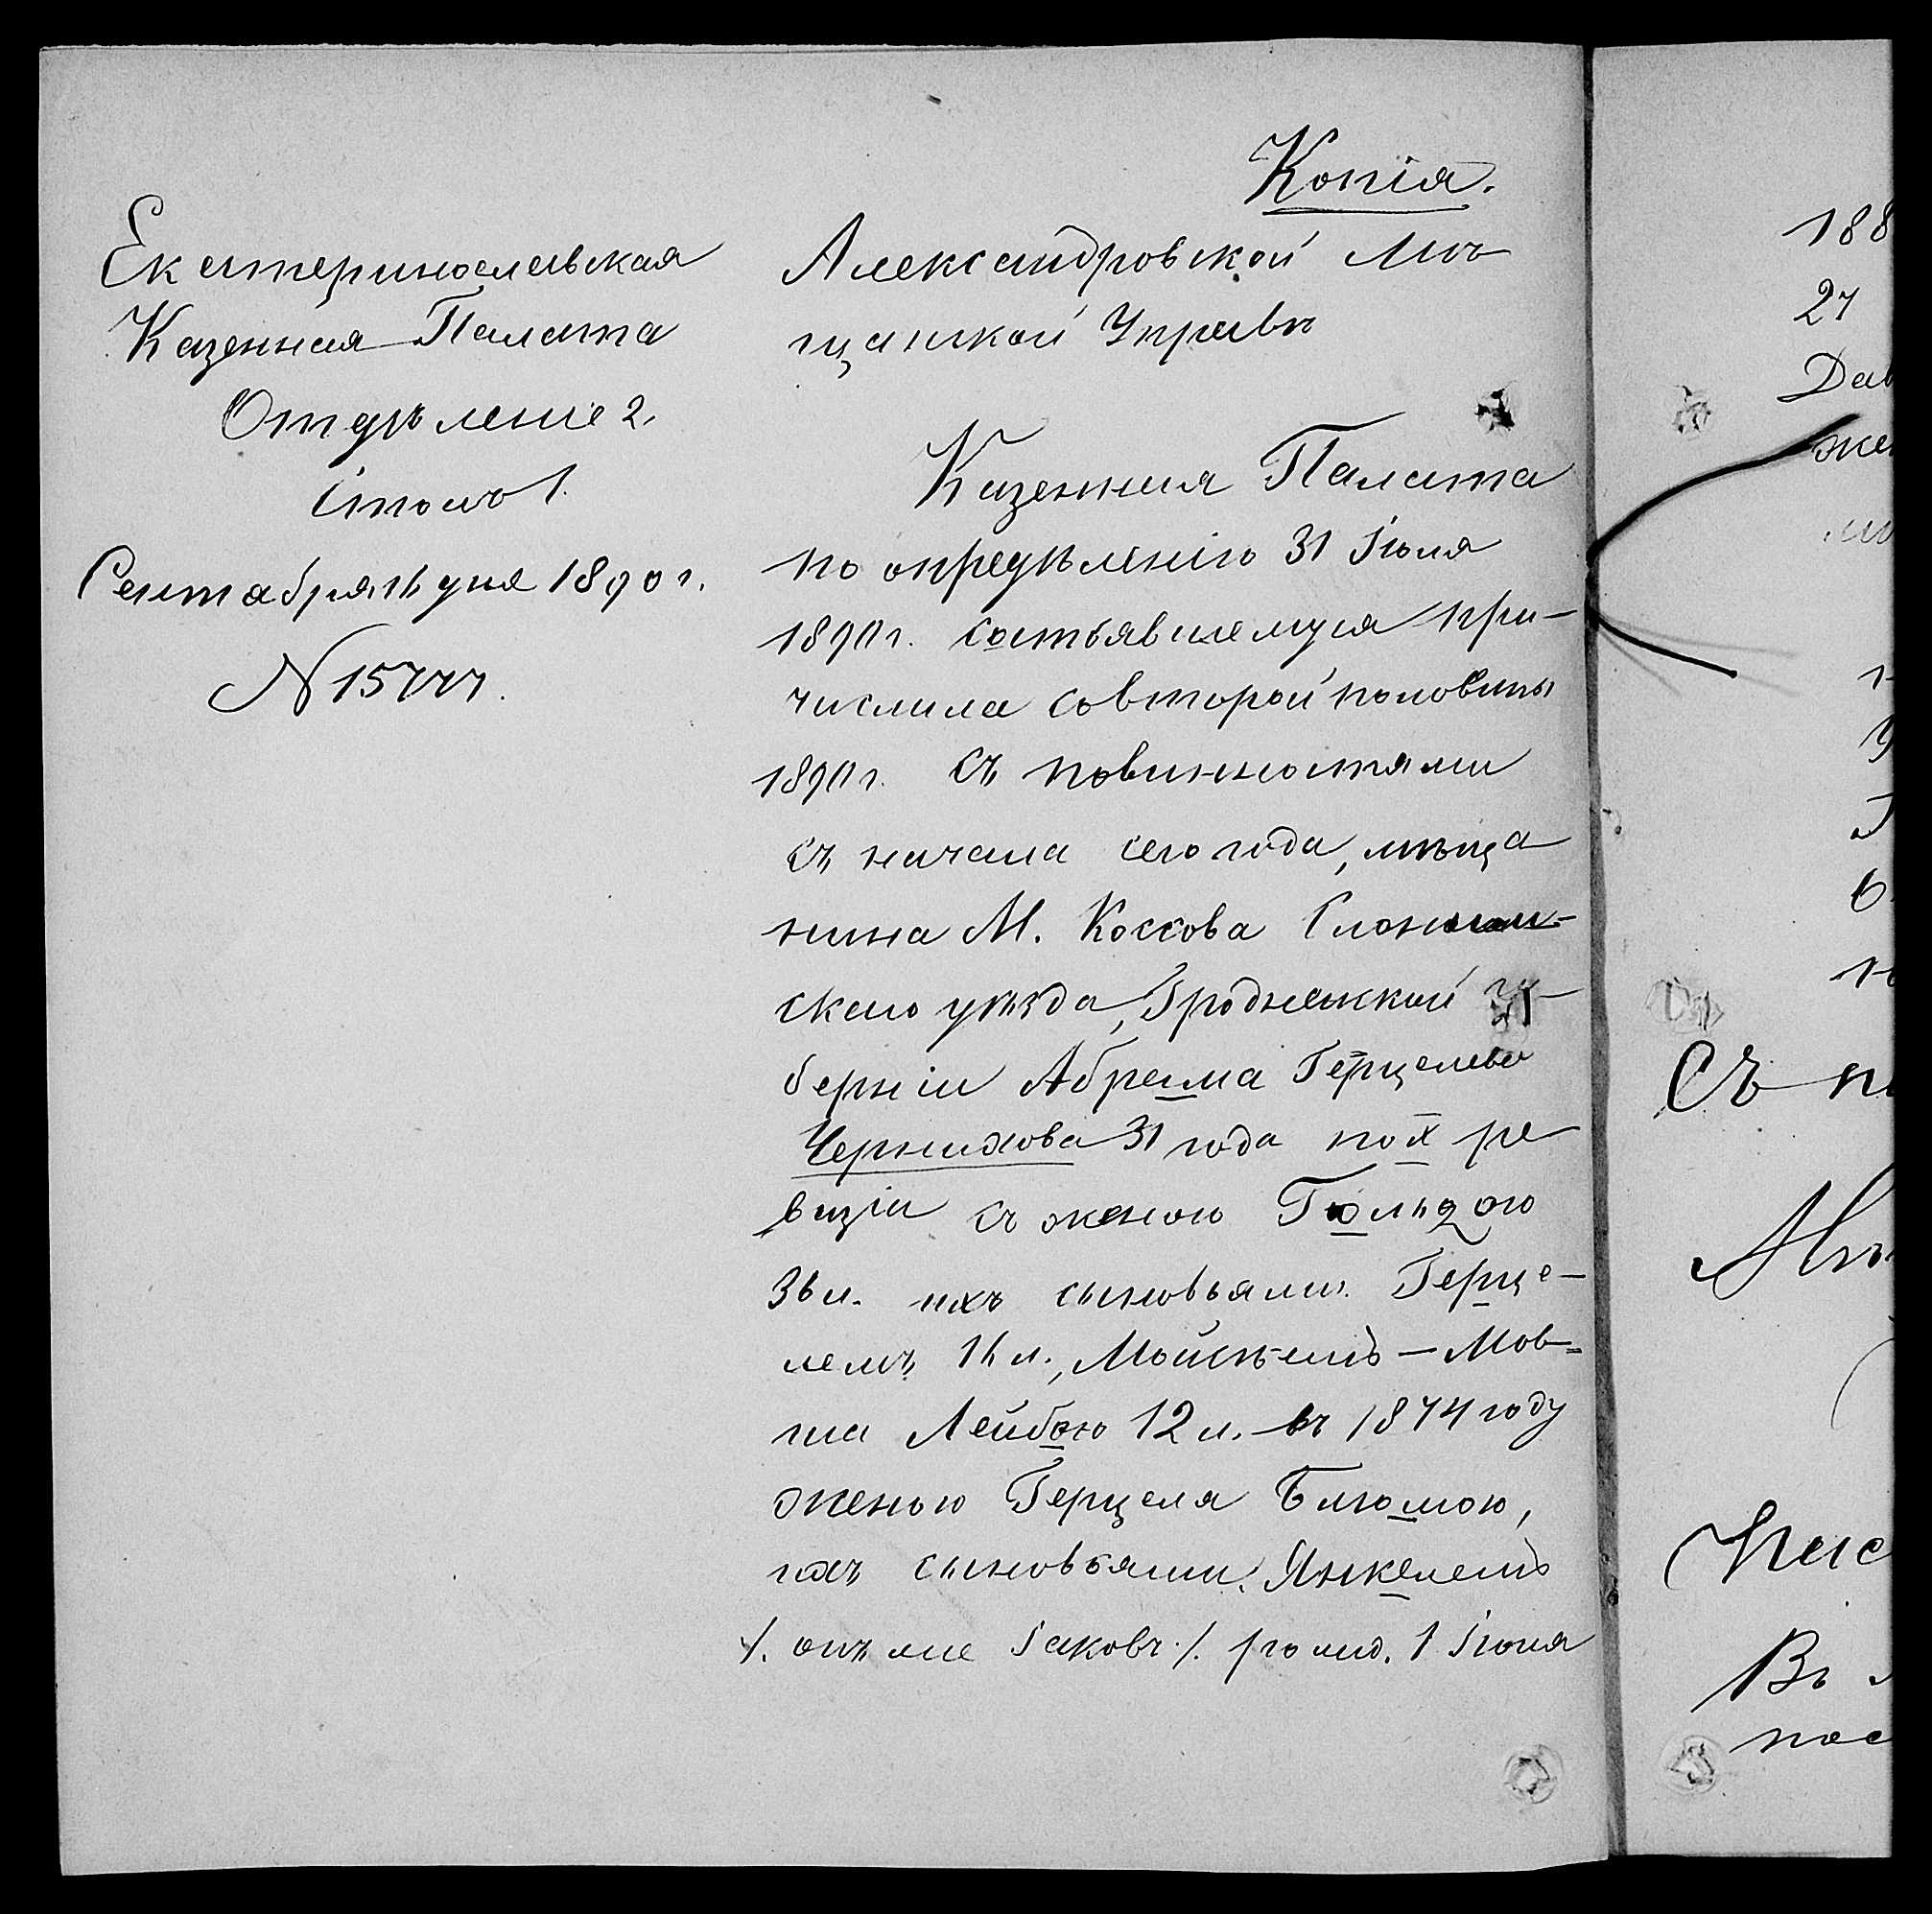 Копія.
Екатеринославская
Казенная Палата
Отдѣленіе 2.
Столъ 1.
Сентября 16 дня 1890 г.
N 15777.
Александровской Мѣ-
щанской Управѣ
Казенная Палата
по опредѣленію 31 Іюля
1890 г. состоявшемуся при-
числила со второй половины
1890 г. съ повинностями
съ начала сего года, мѣща
нина М. Коссова Слоним-
скаго уѣзда, Гродненской гу-
берніи Абрама Герцелева
Чернихова 31 года по X ре
визіи съ женою Гольдою
36 л. ихъ сыновьями. Герце-
лемъ 16 л., Мойсѣемъ - Мов=
ша Лейбою 12 л. въ 1874 году
женою Герцеля Блюмою,
ихъ сыновьями. Янкелемъ
/. онъ же Іаковъ ./. рожд. 1 Іюня
188
27
Дав
жен
Съ
Въ